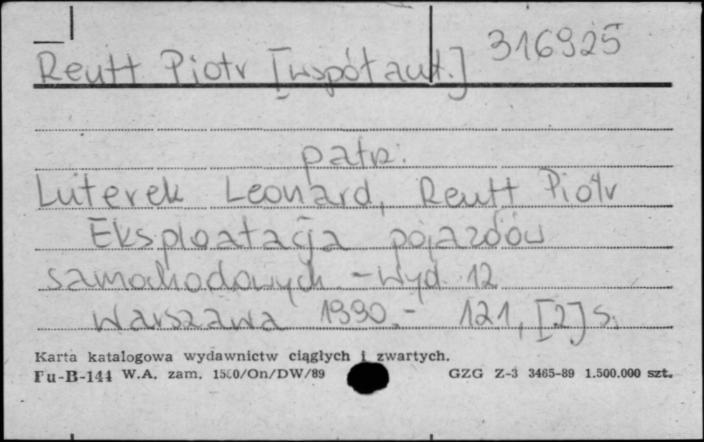 316925
Reutt Piotr [współaut.]
patrz:
Luterek Leonard, Reutt Piotr
Eksploatacja pojazdów
samochodowych. - Wyd. 12
Warszawa 1990. - 121, [2] s.
Karta katalogowa wydawnictw ciągłych i zwartych.
Fu-B-144 W.A. zam. 1500/On/DW/89 GZG Z-3 3465-89 1.500.000 szt.